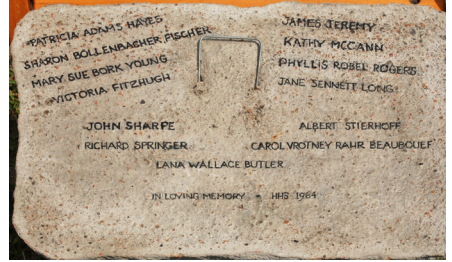 PATRICIA ADAMS HAYES
SHARON BOLLENBACHER FISCHER
MARY SUE BORK YOUNG
VICTORIA FITZHUGH
JAMES JEREMY
KATHY MCCANN
PHYLLIS ROBEL ROGERS
JANE SENNETT LONG
JOHN SHARPE
ALBERT STIERHOFF
RICHARD SPRINGER
CAROL VROTNEY RAHR BEAUBOUEF
LANA WALLACE BUTLER
IN LOVING MEMORY - HHS 1964